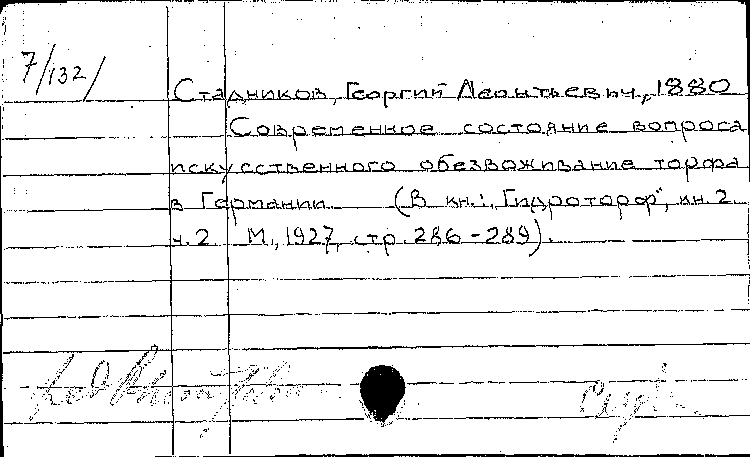 7/132/
Стадников, Георгий Леонтьевич, 1880
Современное состояние вопроса
искусственного обезвоживание торфа
в Германии. (В кн.: „Гидроторф", кн. 2
ч. 2 М., 1927, стр. 286-289).